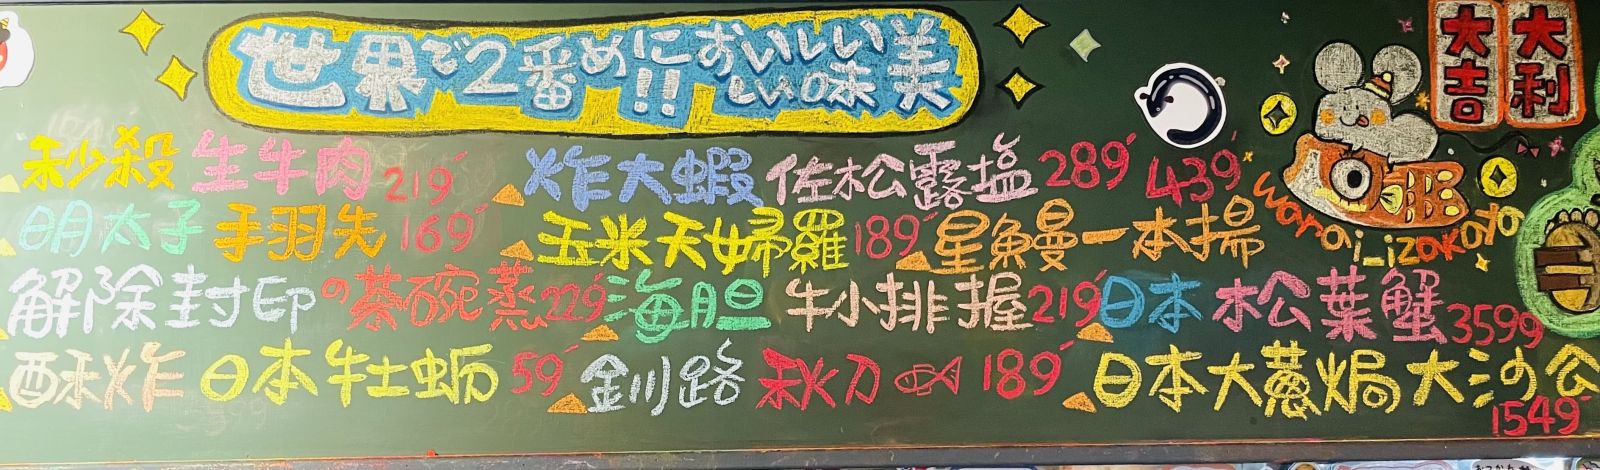 世界で2番めに!!おいしい味美
大吉 大利
秒殺 生牛肉 219
炸大蝦 佐松露塩 289
439
明太子 手羽先 169
玉米天婦羅 189
星鰻一本揚
warai_izakaya
解除封印の茶碗蒸 229
海胆 牛小排握 219
日本 松葉蟹 3599
酥炸 日本牡蛎 59
釧路 秋刀 189
日本大蔥焗大沙公 1549